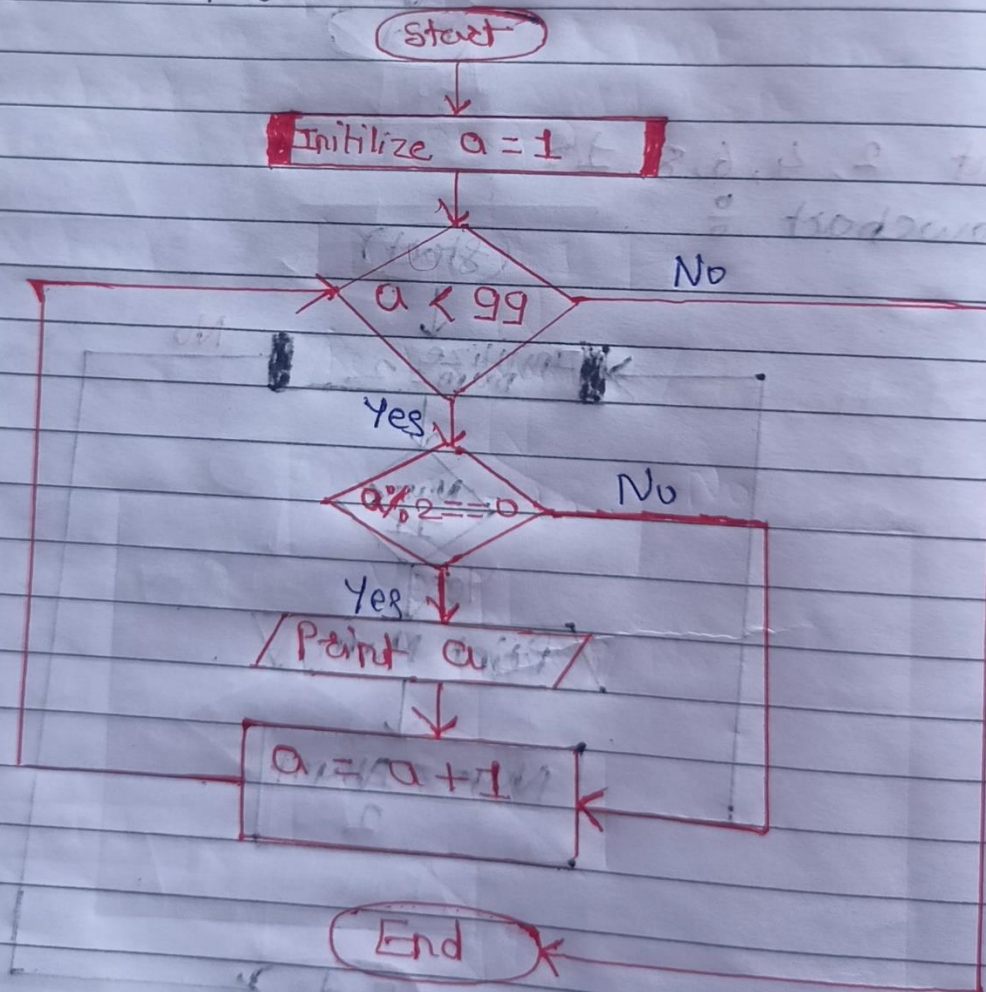 Start
Initilize a = 1
a < 99
No
Yes
a%2==0
No
Yes
Print a
a = a + 1
End